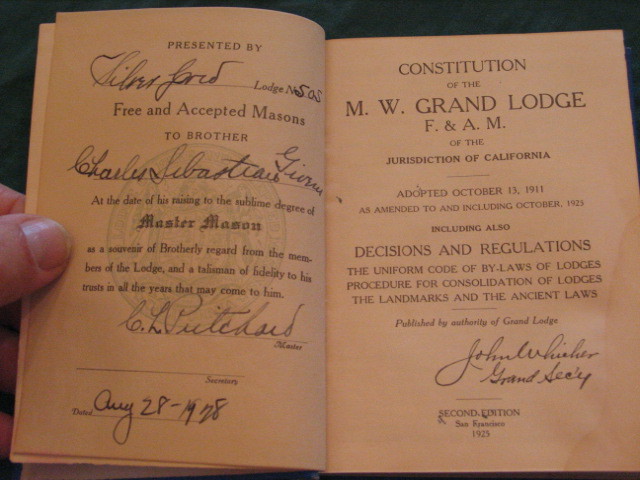 PRESENTED BY
Silver Gord Lodge No 505
Free and Accepted Masons
TO BROTHER
Charles Sebastian
At the date of his raising to the sublime degree of
Master Mason
as a souvenir of Brotherly regard from the mem-
bers of the Lodge, and a talisman of fidelity to his
trusts in all the years that may come to him.
C. L. Pritchard
Master
Secretary
Dated Aug 28-1928
CONSTITUTION
OF THE
M. W. GRAND LODGE
F. & A. M.
OF THE
JURISDICTION OF CALIFORNIA
ADOPTED OCTOBER 13, 1911
AS AMENDED TO AND INCLUDING OCTOBER, 1925
INCLUDING ALSO
DECISIONS AND REGULATIONS
THE UNIFORM CODE OF BY-LAWS OF LODGES
PROCEDURE FOR CONSOLIDATION OF LODGES
THE LANDMARKS AND THE ANCIENT LAWS
Published by authority of Grand Lodge
John Whicher
Grand Sec'y
SECOND EDITION
San Francisco
1925